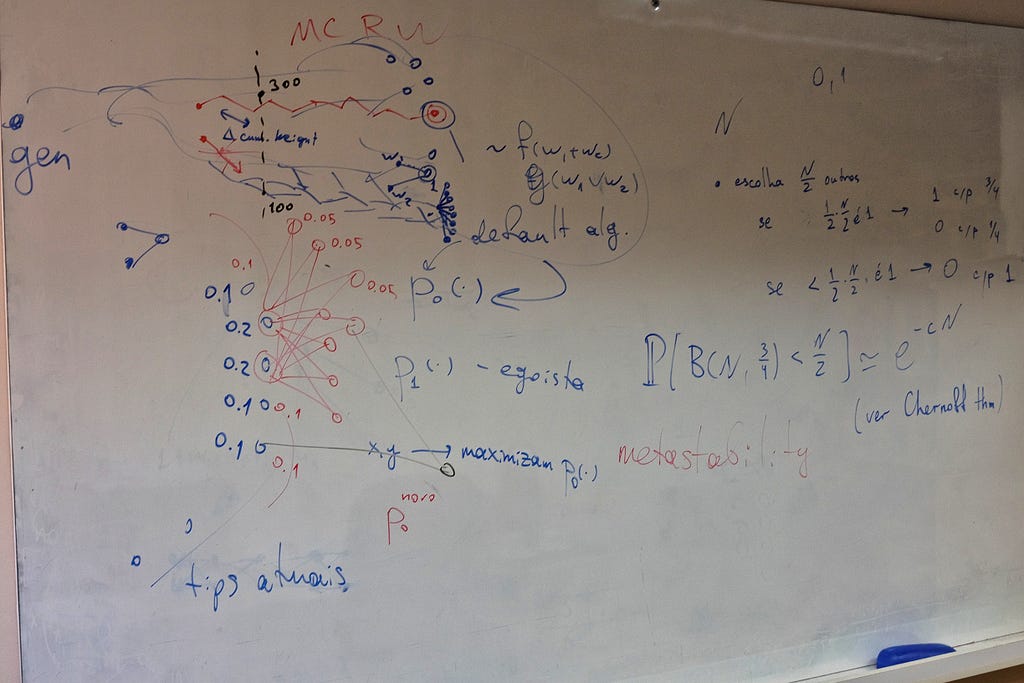 MCRW
300
Δ cum. weight
gen
100
w₁
w₂
~ f(w₁+w₂)
g(w₁∨w₂)
default alg.
p₀(·)
0.05
0.05
0.05
0.1
0.1
0.2
0.2
0.1
0.1
0.1
0.1
p₁(·) - egoista
x,y → maximizam p₀(·)
p₀ novo
tips atuais
0,1
N
• escolha N/2 outros
se 1/2·N/2 é 1 → 1 c/p 3/4
0 c/p 1/4
se < 1/2·N/2 é 1 → 0 c/p 1
P[B(N, 3/4) < N/2] ≃ e^-cN
(ver Chernoff thm)
metastability